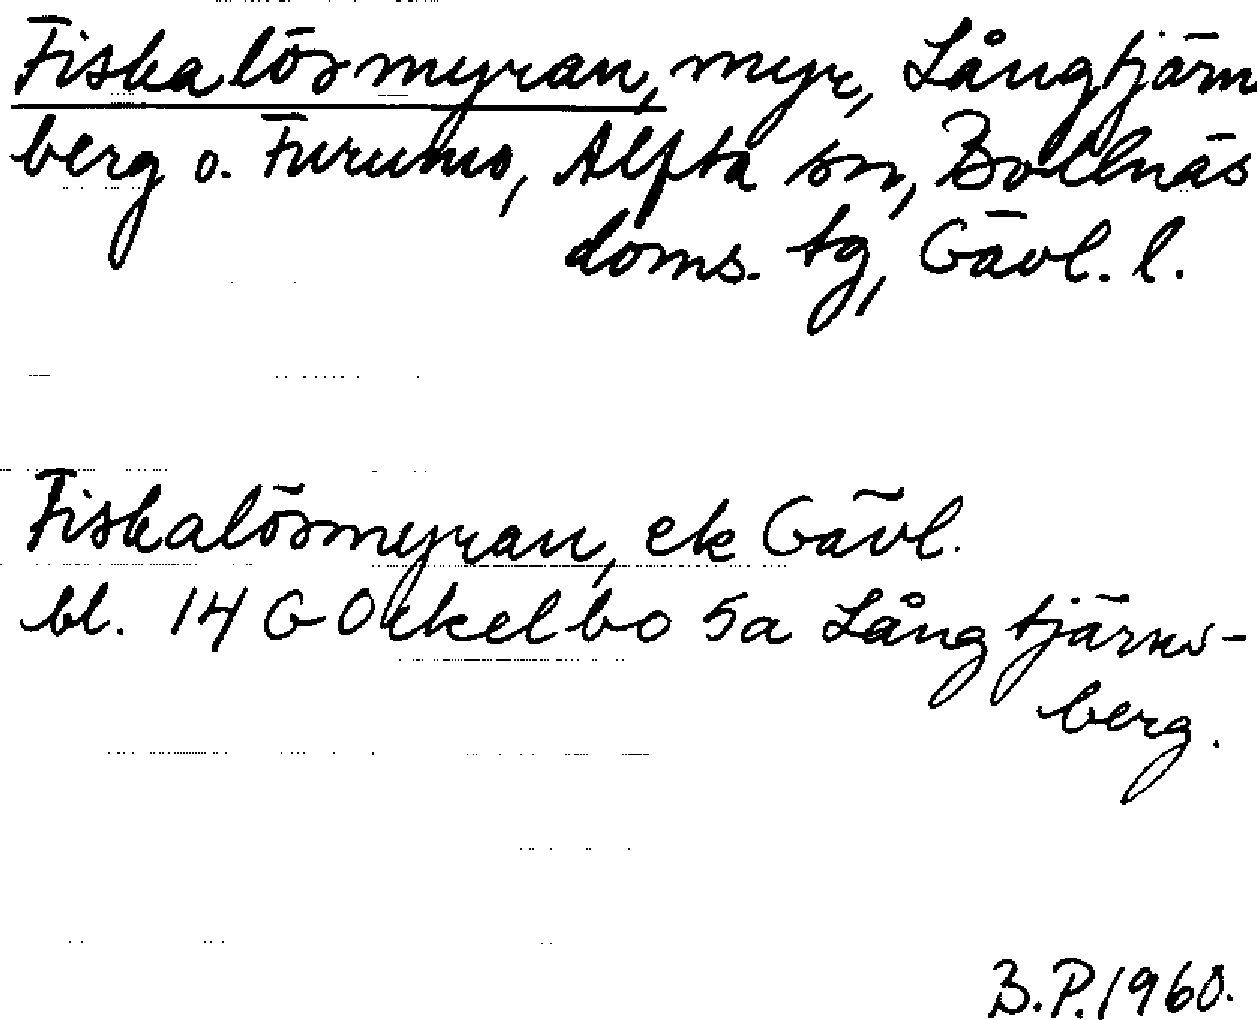 Fiskalösmyran, myr, Långtjärn
berg o. Furumo, Alfta sn, Bollnäs
doms. tg, Gävl. l.
Fiskalösmyran, ek Gävl.
bl. 14 G Ockelbo 5a Långtjärns-
berg.
B.P. 1960.